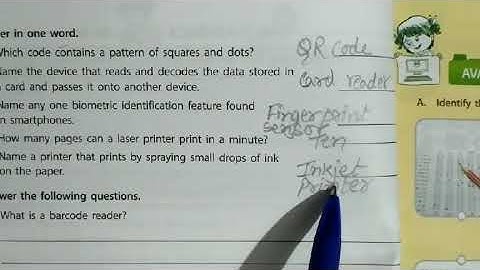 er in one word.
Which code contains a pattern of squares and dots? QR Code
Name the device that reads and decodes the data stored in
a card and passes it onto another device. Card reader
Name any one biometric identification feature found
in smartphones. Finger print
sensor
How many pages can a laser printer print in a minute? Ten
Name a printer that prints by spraying small drops of ink
on the paper. Inkjet
printer
wer the following questions.
What is a barcode reader?
AVA
A. Identify th